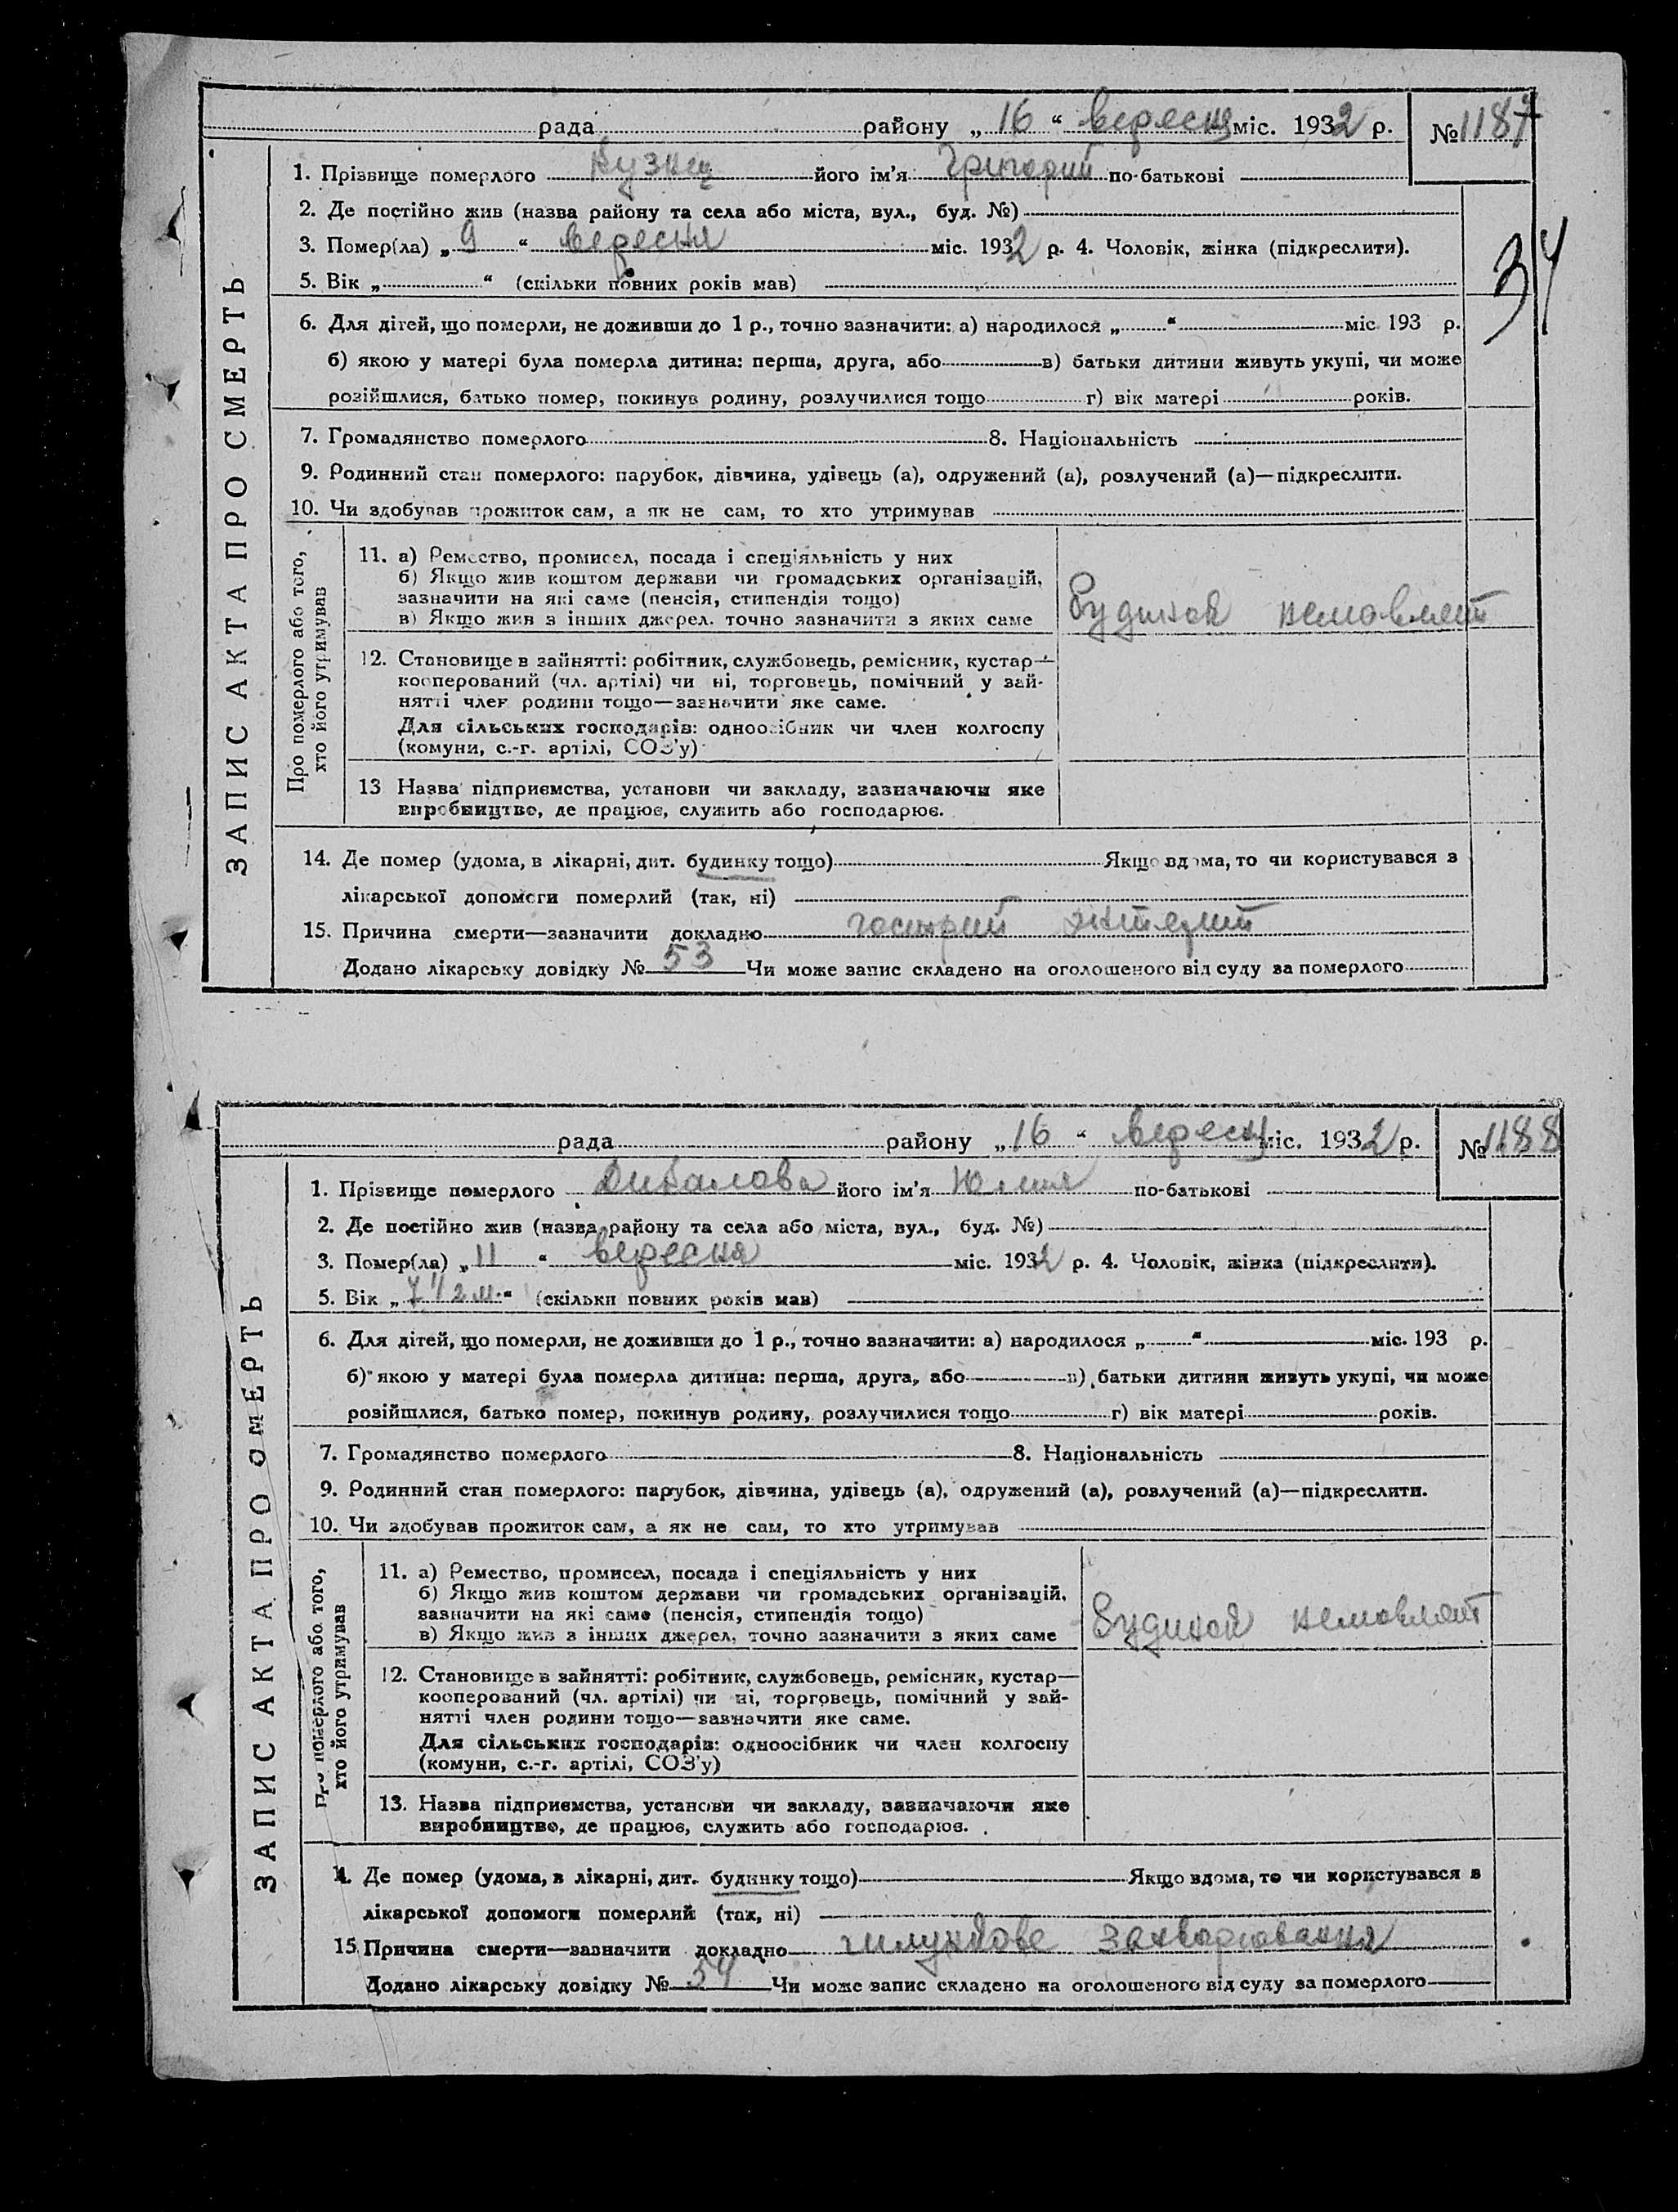 рада районy „16“ вересня міс. 1932 р. № 1187
1. Прізвище померлого Кузнец його ім'я Григорий по-батькові
34
2. Де постійно жив (назва району та села або міста, вул., буд. №)
3. Помер(ла) „9“ вересня міс. 1932 р. 4. Чоловік, жінка (підкреслити).
5. Вік „ “ (скільки повних років мав)
6. Для дітей, що померли, не доживши до 1 р., точно зазначити: а) народилося „ “ міс. 193 р.
б) якою у матері була померла дитина: перша, друга, або в) батьки дитини живуть укупі, чи може
розійшлися, батько помер, покинув родину, розлучилися тощо г) вік матері років.
7. Громадянство померлого 8. Національність
9. Родинний стан померлого: парубок, дівчина, удівець (а), одружений (а), розлучений (а)—підкреслити.
10. Чи здобував прожиток сам, а як не сам, то хто утримував
ЗАПИС АКТА ПРО СМЕРТЬ
Про померлого або того,
хто його утримував
11. а) Ремество, промисел, посада і спеціяльність у них
б) Якщо жив коштом держави чи громадських організацій,
зазначити на які саме (пенсія, стипендія тощо)
в) Якщо жив з інших джерел. точно зазначити з яких саме
будинок немовлят
12. Становище в зайнятті: робітник, службовець, ремісник, кустар—
кооперований (чл. артілі) чи ні, торговець, помічний у зай-
нятті член родини тощо—зазначити яке саме.
Для сільських господарів: одноосібник чи член колгоспу
(комуни, с.-г. артілі, СОЗ'у)
13 Назва підприємства, установи чи закладу, зазначаючи яке
виробництво, де працює, служить або господарює.
14. Де помер (удома, в лікарні, дит. будинку тощо) Якщо вдома, то чи користувався з
лікарської допомоги померлий (так, ні)
15. Причина смерти—зазначити докладно гострий ентерит
Додано лікарську довідку № 53 Чи може запис складено на оголошеного від суду за померлого
рада району „16“ вересня міс. 1932 р. № 1188
1. Прізвище померлого його ім'я Юлия по-батькові
2. Де постійно жив (назва району та села або міста, вул., буд. №)
3. Помер(ла) „11“ вересня міс. 1932 р. 4. Чоловік, жінка (підкреслити).
5. Вік „7 1/2 м.“ (скільки повних років мав)
6. Для дітей, що померли, не доживши до 1 р., точно зазначити: а) народилося „ “ міс. 193 р.
б) якою у матері була померла дитина: перша, друга, або в) батьки дитини живуть укупі, чи може
розійшлися, батько помер, покинув родину, розлучилися тощо г) вік матері років.
7. Громадянство померлого 8. Національність
9. Родинний стан померлого: парубок, дівчина, удівець (а), одружений (а), розлучений (а)—підкреслити.
10. Чи здобував прожиток сам, а як не сам, то хто утримував
ЗАПИС АКТА ПРО СМЕРТЬ
Про померлого або того,
хто його утримував
11. а) Ремество, промисел, посада і спеціяльність у них
б) Якщо жив коштом держави чи громадських організацій,
зазначити на які саме (пенсія, стипендія тощо)
в) Якщо жив з інших джерел, точно зазначити з яких саме
будинок немовлят
12. Становище в зайнятті: робітник, службовець, ремісник, кустар—
кооперований (чл. артілі) чи ні, торговець, помічний у зай-
нятті член родини тощо—зазначити яке саме.
Для сільських господарів: одноосібник чи член колгоспу
(комуни, с.-г. артілі, СОЗ'у)
13. Назва підприємства, установи чи закладу, зазначаючи яке
виробництво, де працює, служить або господарює.
14. Де помер (удома, в лікарні, дит. будинку тощо) Якщо вдома, то чи користувався з
лікарської допомоги померлий (так, ні)
15 Причина смерти—зазначити докладно шлункове захворювання
Додано лікарську довідку № 54 Чи може запис складено на оголошеного від суду за померлого